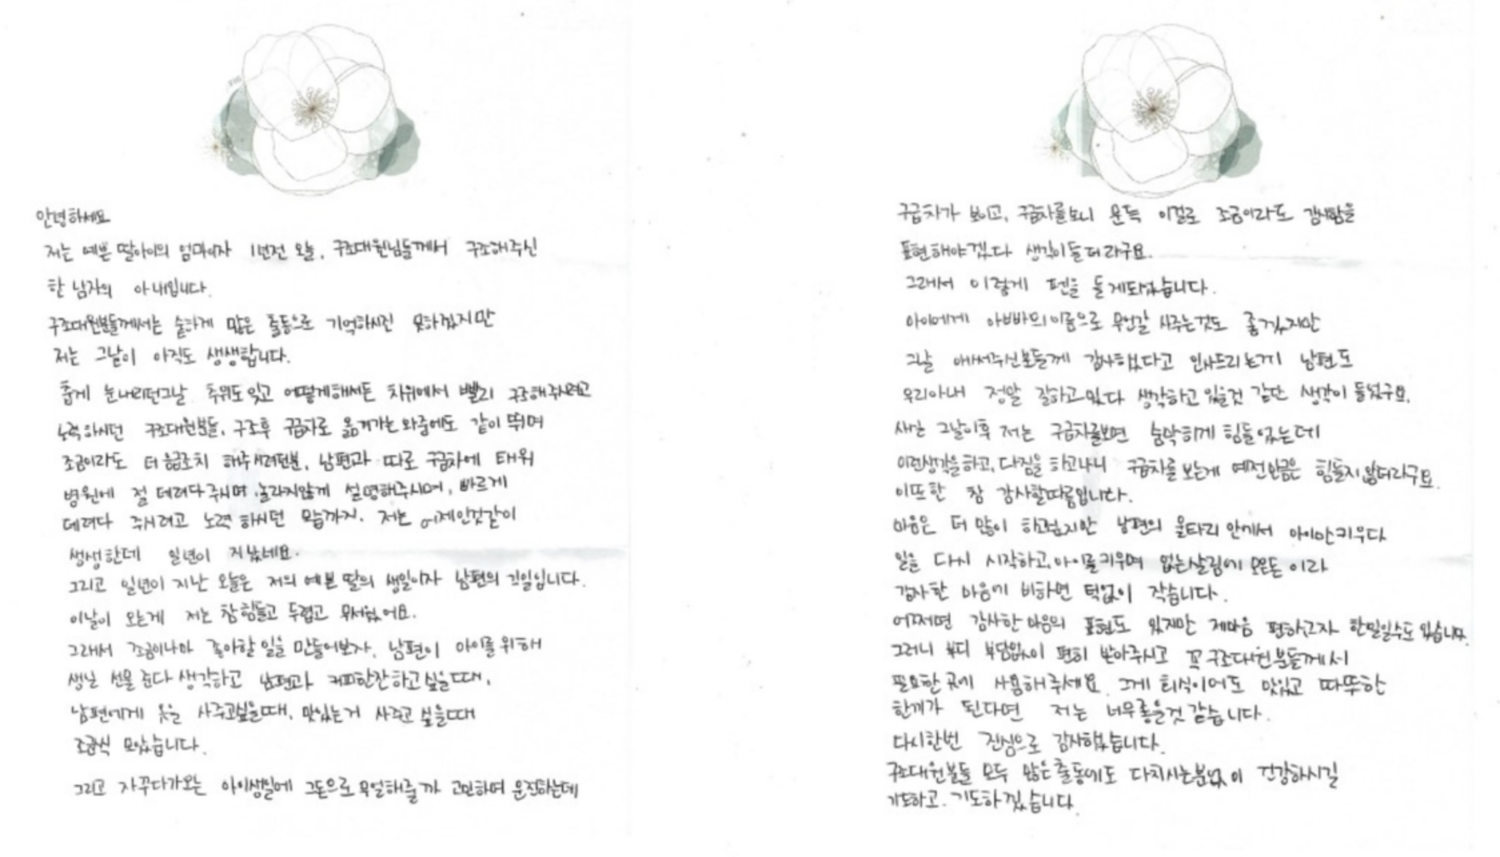 안녕하세요
저는 예쁜 딸아이의 엄마이자 1년전 오늘, 구조대원님들께서 구조해주신
한 남자의 아내입니다.
구조대원분들께서는 숱하게 많은 출동으로 기억하시진 못하겠지만
저는 그날이 아직도 생생합니다.
춥게 눈내리던그날 추위도 잊고 어떻게해서든 차위에서 빨리 구조해주시려고
노력하시던 구조대원분들, 구조후 구급차로 옮겨가는 와중에도 같이 뛰며
조금이라도 더 응급조치 해주시려던분, 남편과 따로 구급차에 태워
병원에 절 데려다주시며 놀라지않게 설명해주시며, 빠르게
데려다 주시려고 노력하시던 모습까지. 저는 어제인것같이
생생한데 일년이 지났네요.
그리고 일년이 지난 오늘은 저의 예쁜 딸의 생일이자 남편의 기일입니다.
이날이 오는게 저는 참 힘들고 두렵고 무서웠어요.
그래서 조금이나마 좋아할 일을 만들어보자, 남편이 아이를 위해
생일 선물 준다 생각하고 남편과 커피한잔하고싶을때,
남편에게 옷을 사주고싶을때, 맛있는거 사주고 싶을때
조금씩 모았습니다.
그리고 자꾸다가오는 아이생일에 그돈으로 무얼해줄까 고민하며 운전하는데
구급차가 보이고, 구급차를보니 문득 이걸로 조금이라도 감사함을
표현해야겠다 생각이들더라구요.
그래서 이렇게 펜을 들게되었습니다.
아이에게 아빠의이름으로 무언갈 사주는것도 좋겠지만
그날 애써주신분들께 감사했다고 인사드리는게 남편도
우리아내 정말 잘하고있다 생각하고 있을것 같단 생각이 들었구요.
사실 그날이후 저는 구급차를보면 숨막히게 힘들었는데
이런생각을하고, 다짐을 하고나니 구급차를 보는게 예전만큼은 힘들지않더라구요.
이또한 참 감사할따름입니다.
마음은 더 많이 하고싶지만 남편의 울타리 안에서 아이만키우다
일을 다시 시작하고, 아이를키우며 없는살림에 모은돈 이라
감사한 마음에 비하면 턱없이 작습니다.
어쩌면 감사한 마음의 표현도 있지만 제마음 편하고자 한일일수도 있습니다.
그러니 부디 부담없이 편히 받아주시고 꼭 구조대원분들께서
필요한곳에 사용해주세요. 그게 회식이어도 맛있고 따뜻한
한끼가 된다면 저는 너무좋을것 같습니다.
다시한번 진심으로 감사했습니다.
구조대원분들 모두 많은출동에도 다치시는분없이 건강하시길
기도하고. 기도하겠습니다.